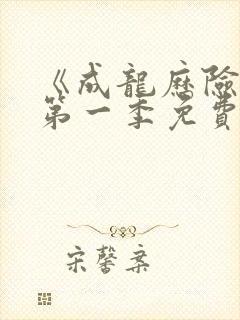 《成龍歷險
第一季免費
宋馨棻